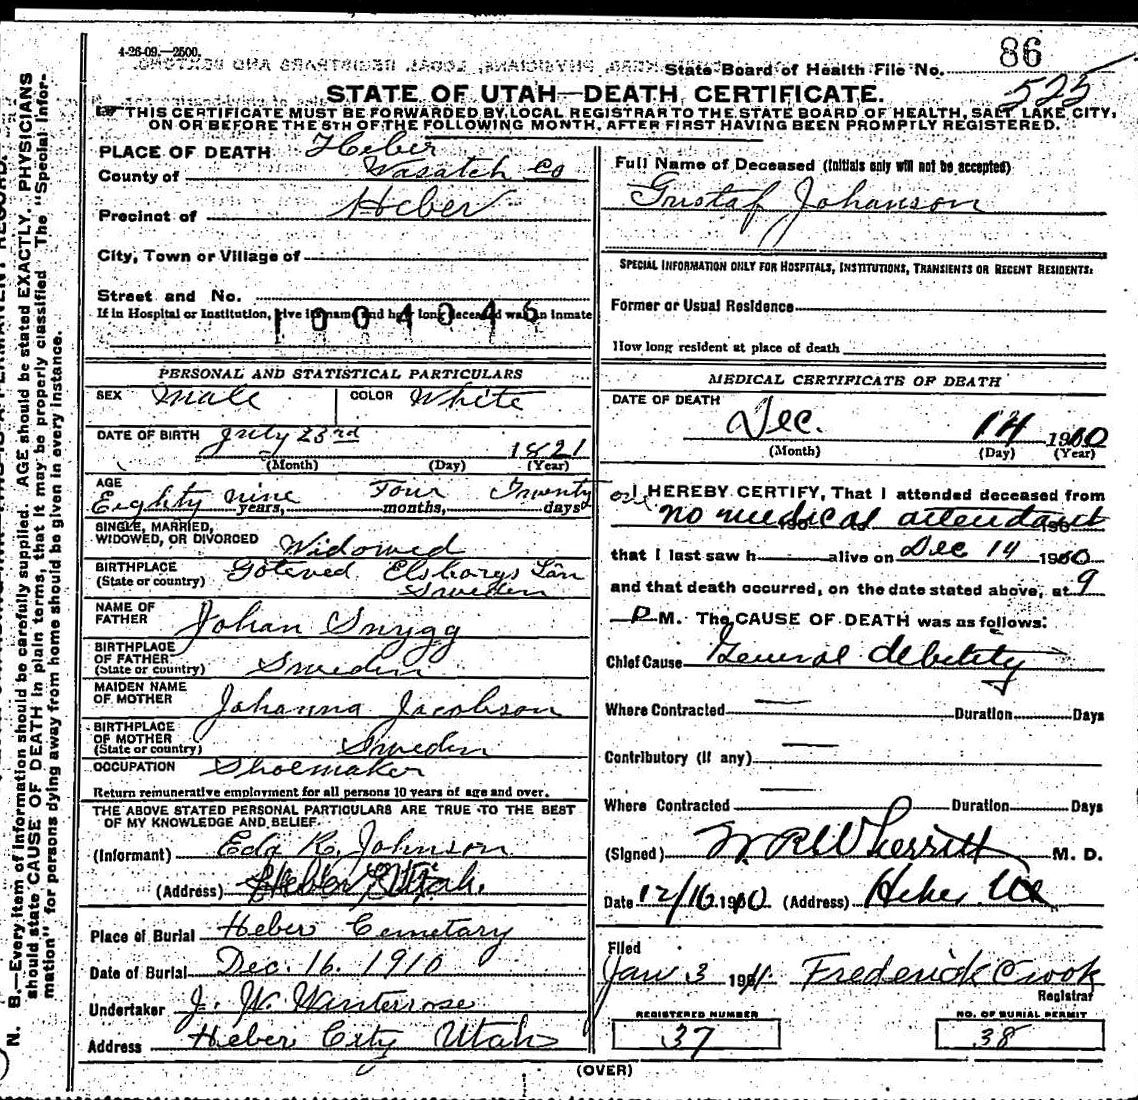 4-26-09.—2500.
86
State Board of Health File No.
525
STATE OF UTAH—DEATH CERTIFICATE.
THIS CERTIFICATE MUST BE FORWARDED BY LOCAL REGISTRAR TO THE STATE BOARD OF HEALTH, SALT LAKE CITY,
ON OR BEFORE THE 5TH OF THE FOLLOWING MONTH, AFTER FIRST HAVING BEEN PROMPTLY REGISTERED.
PLACE OF DEATH Heber
County of Wasatch Co
Precinct of Heber
City, Town or Village of
Street and No.
If in Hospital or Institution, give its name and how long deceased was an inmate
1004046
PERSONAL AND STATISTICAL PARTICULARS
SEX Male COLOR White
DATE OF BIRTH July 23rd 1821
(Month) (Day) (Year)
AGE
Eighty nine years, Four months, Twenty one days
SINGLE, MARRIED,
WIDOWED, OR DIVORCED Widowed
BIRTHPLACE
(State or country) Goteved Elsborgs Län
Sweden
NAME OF
FATHER Johan Snygg
BIRTHPLACE
OF FATHER
(State or country) Sweden
MAIDEN NAME
OF MOTHER Johanna Jacobson
BIRTHPLACE
OF MOTHER
(State or country) Sweden
OCCUPATION Shoemaker
Return remunerative employment for all persons 10 years of age and over.
THE ABOVE STATED PERSONAL PARTICULARS ARE TRUE TO THE BEST
OF MY KNOWLEDGE AND BELIEF.
(Informant) Eda R. Johnson
(Address) Heber Utah.
Place of Burial Heber Cemetary
Date of Burial Dec. 16. 1910
Undertaker J. W. Winterrose
Address Heber City Utah
Full Name of Deceased (Initials only will not be accepted)
Gustaf Johanson
SPECIAL INFORMATION ONLY FOR HOSPITALS, INSTITUTIONS, TRANSIENTS OR RECENT RESIDENTS:
Former or Usual Residence
How long resident at place of death
MEDICAL CERTIFICATE OF DEATH
DATE OF DEATH
Dec. 14 1910
(Month) (Day) (Year)
I HEREBY CERTIFY, That I attended deceased from
no medical attendant 190
that I last saw h alive on Dec 14 1910
and that death occurred, on the date stated above, at 9
P M. The CAUSE OF DEATH was as follows:
Chief Cause General debility
Where Contracted — Duration Days
Contributory (If any) —
Where Contracted — Duration Days
(Signed) W. R. Wherritt M. D.
Date 12/16 1910 (Address) Heber
Filed
Jan 3 1911 Frederick Crook
Registrar
REGISTERED NUMBER
37
NO. OF BURIAL PERMIT
38
(OVER)
N. B.—Every item of information should be carefully supplied. AGE should be stated EXACTLY. PHYSICIANS
should state CAUSE OF DEATH in plain terms, that it may be properly classified. The "Special Infor-
mation" for persons dying away from home should be given in every instance.